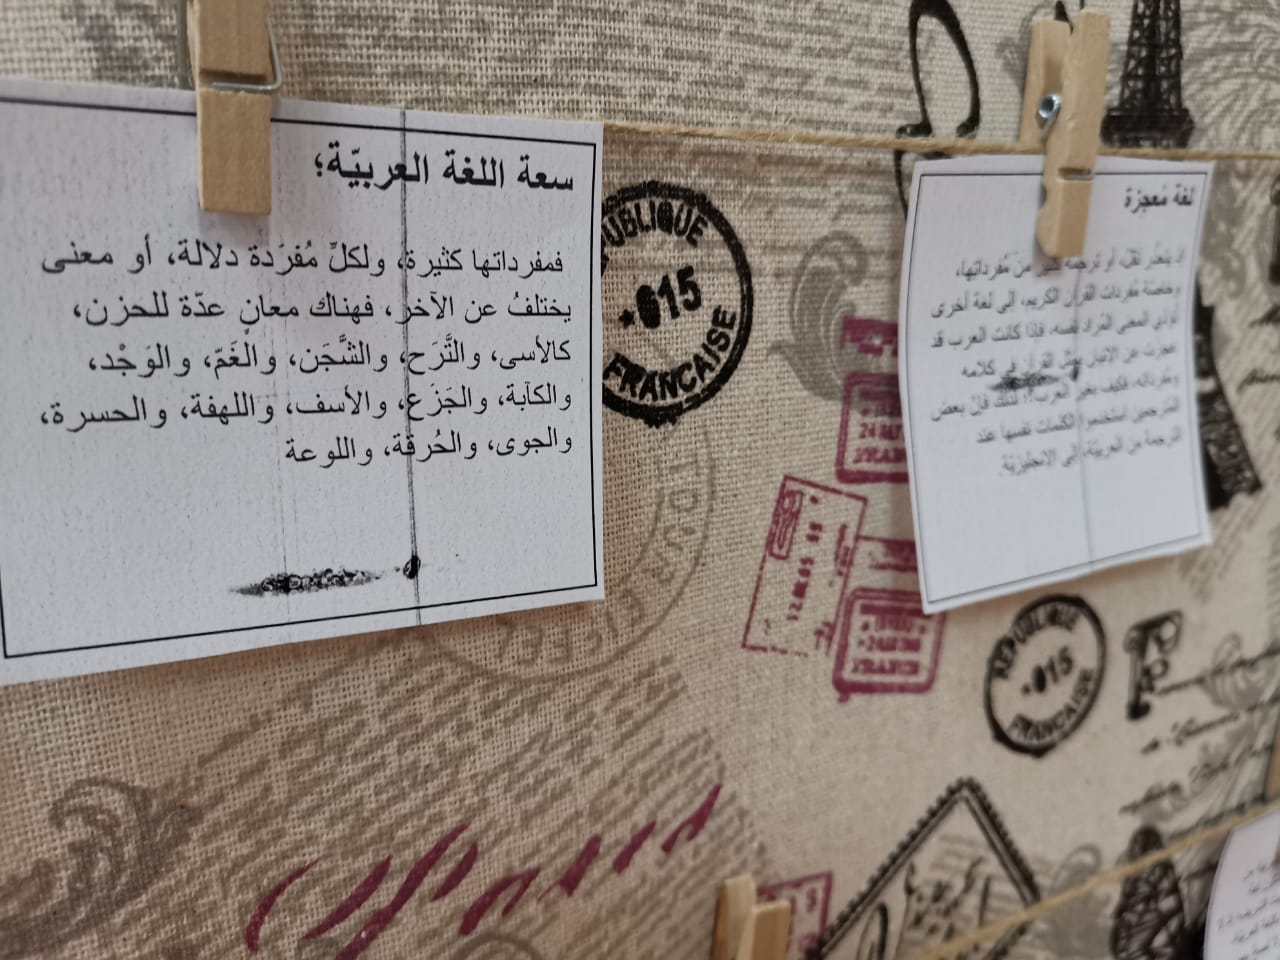 سعة اللغة العربيّة؛
فمفرداتها كثيرة، ولكلِّ مُفرَدة دلالة، أو معنى
يختلفُ عن الآخر، فهناك معانٍ عدّة للحزن،
كالأسى، والتَّرَح، والشَّجَن، والغَمّ، والوَجْد،
والكآبة، والجَزَع، والأسف، واللهفة، والحسرة،
والجوى، والحُرقة، واللوعة
لغة مُعجزة
إذ يتعذّر نقل، أو ترجمة كثير من مُفرداتِها،
وخاصّة مُفردات القرآن الكريم، إلى لغة أخرى
تُؤدي المعنى المُراد نفسه، فإذا كانت العرب قد
عجزت عن الإتيان بمثل القرآن في كلامه
ومُفرداته، فكيف بغير العرب؟! لذلك فإنّ بعض
المُترجمين استخدموا الكلمات نفسها عند
الترجمة من العربيّة، إلى الإنجليزيّة.
PUBLIQUE
015
FRANCAISE
FRANCE
TOUR EIFFEL
REPUBLIQUE
015
FRANCAISE
FRANCE